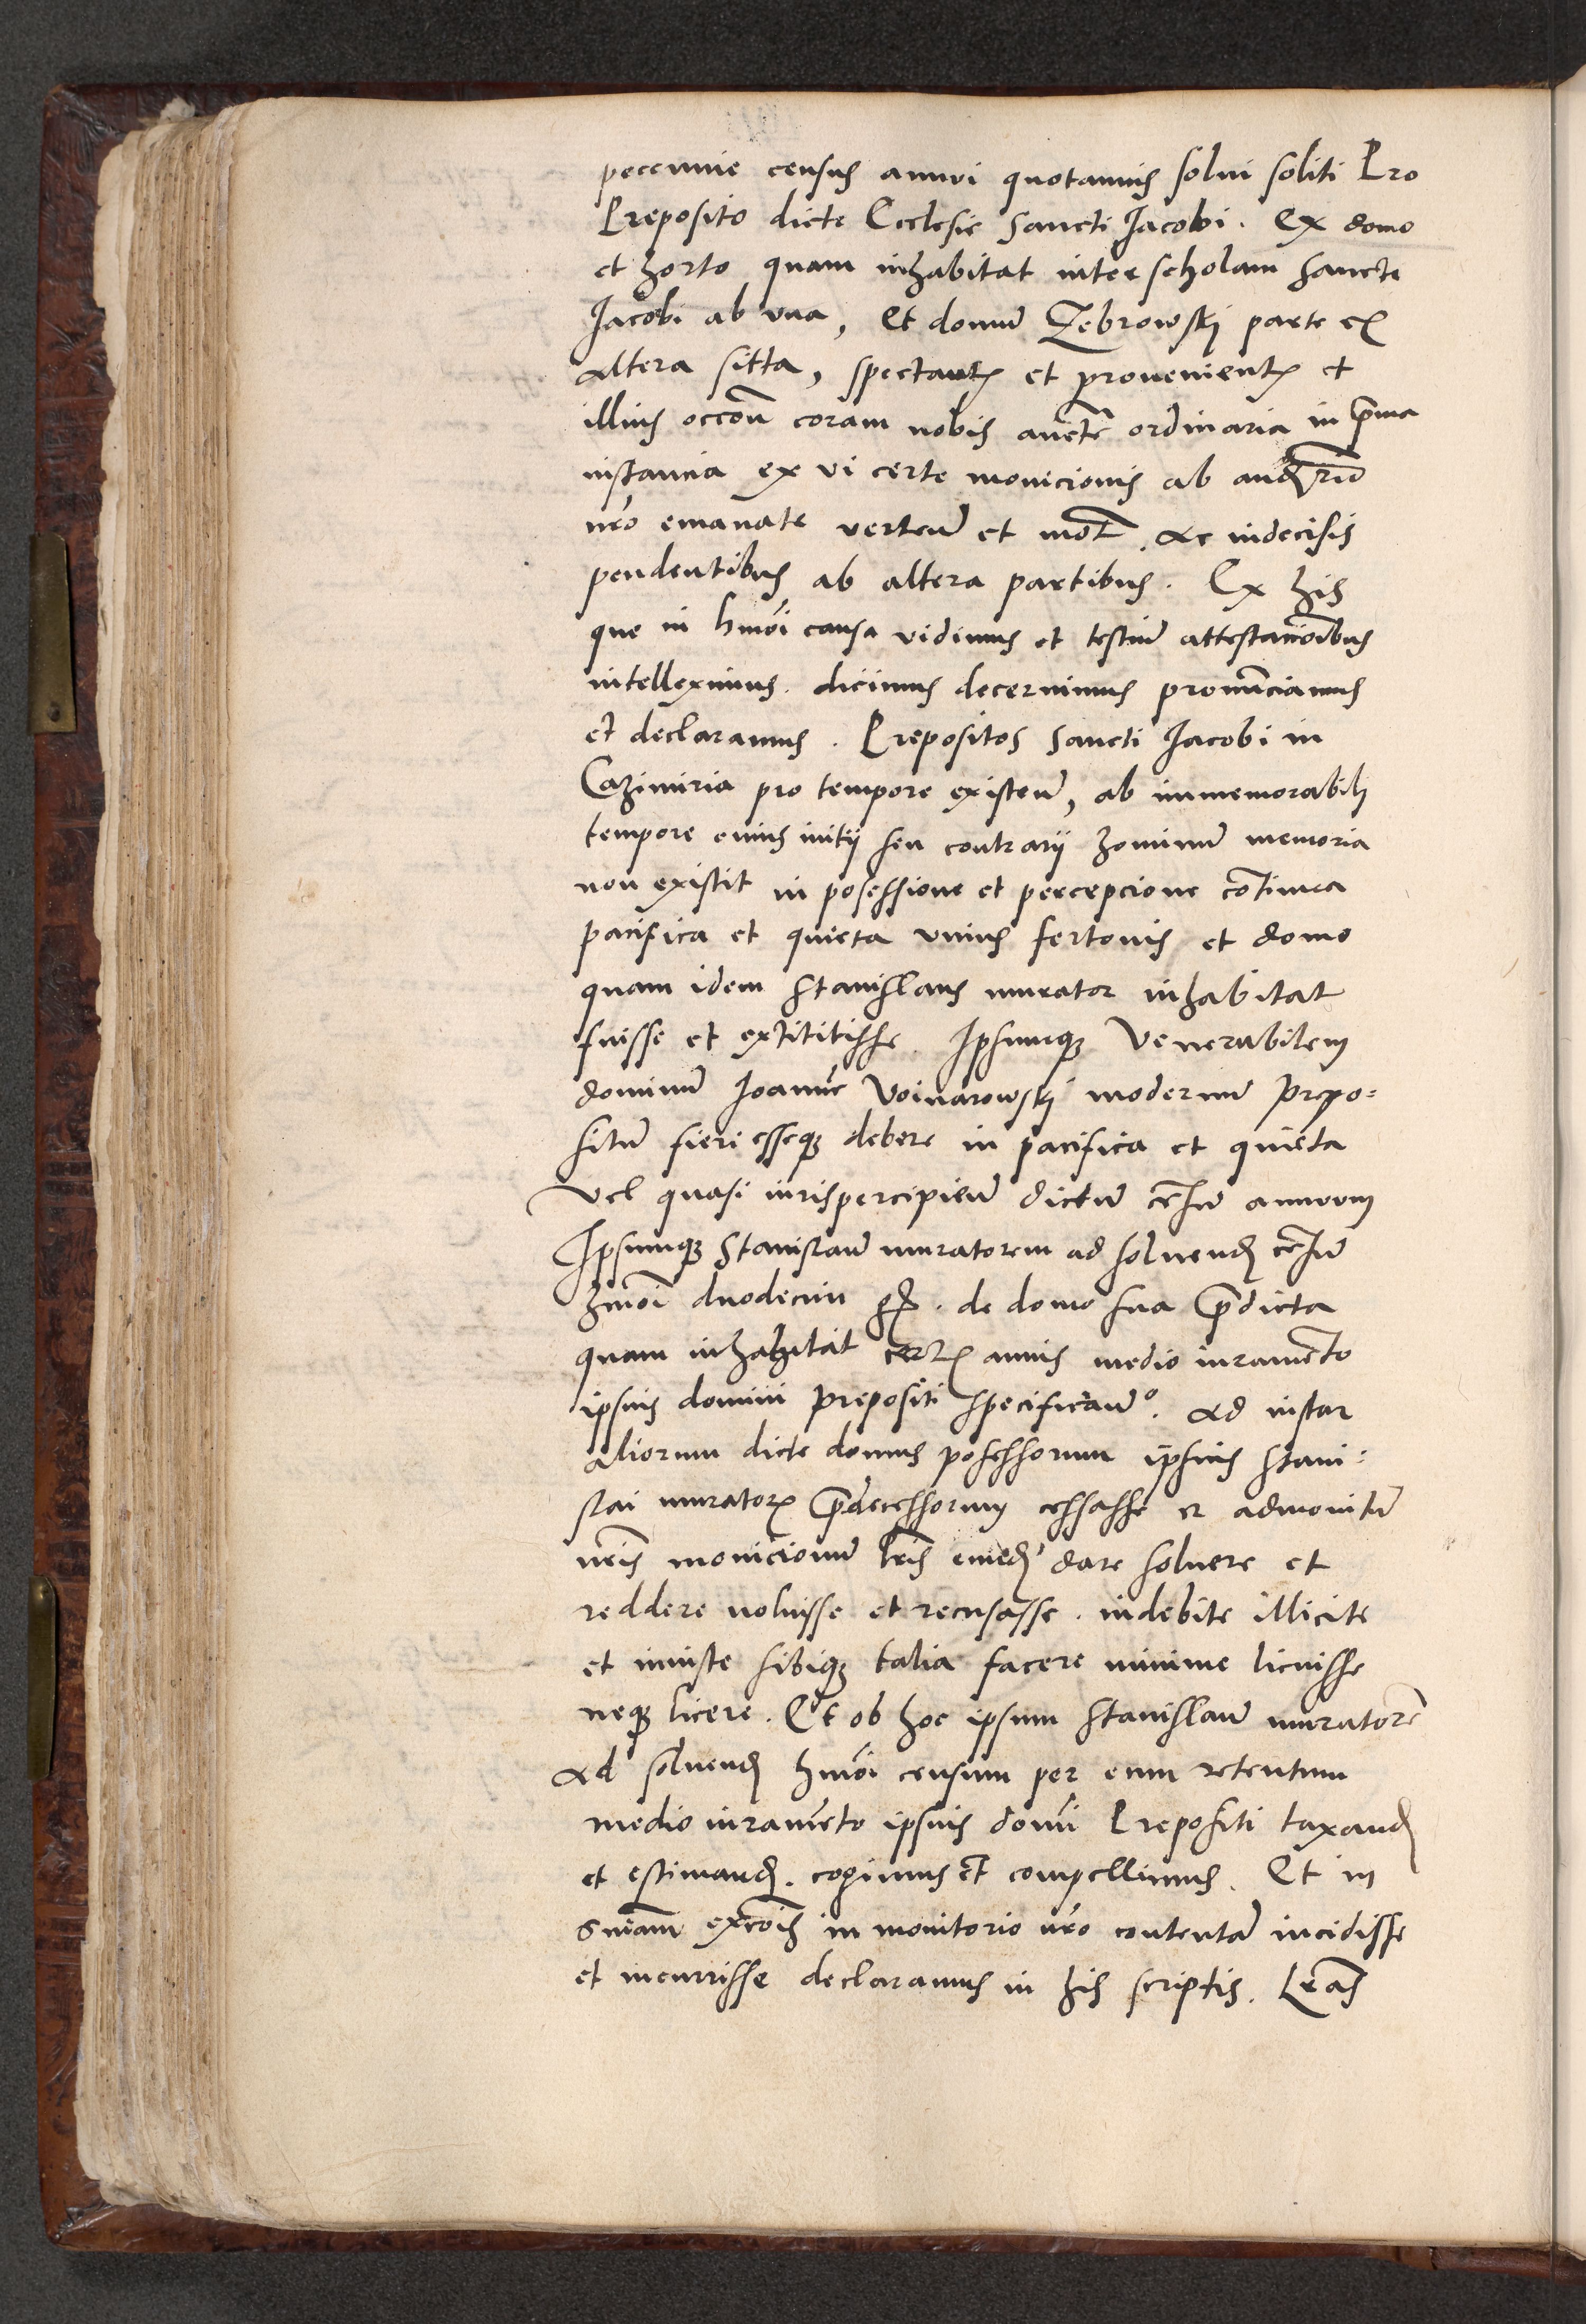 peccunie census annui quotannis solui soliti Pro
Preposito dicte Ecclesie Sancti Jacobi. Ex domo
et horto quam inhabitat inter scholam Sancti
Jacobi ab vna, Et domū Zebrowskÿ parte ex
altera sitta, spectant et prouenient et
illius occōn coram nobis aucte ordinaria in prima
instancia ex vi certe monicionis ab
nrō emanate verteń et mōt. Ac indecisis
pendentibus ab altera partibus. Ex his
que in hmōi causa vidimus et testiū attestacionibus
intelleximus. dicimus decernimus pronūciamus
et declaramus. Prepositos Sancti Jacobi in
Cazimiria pro tempore existeń, ab immemorabili
tempore cuius initÿ seu contrarÿ hominū memoria
non existit in posessione et percepcione cōtinua
pacifica et quieta vnius fertonis et domo
quam idem Stanislaus murator inhabitat
fuisse et extititisse. Ipsumq3 Venerabilem
dominū Joannē Voinarowskÿ modernū Prepo=
sitū fieri esseq3 debere in pacifica et quieta
vel quasi iurispercipień dictum cēsū annuum
Ipsumq3 Stanislaū muratorem ad soluend cēsū
hmōi duodecim gr. de domo sua p̄dicta
quam inhabitat cert annis medio iuramēto
ipsius domini Prepositi specificańo. Ad instar
aliorum dicte domus posessorum ipsius Stani=
slai murator p̄decessorum cessasse et admonitū
nrīs monicionū lrīs eined dare soluere et
reddere noluisse et recusasse. indebite illicite
et iniuste sibiq3 talia facere minime licuisse
neq3 licere. Et ob hoc ipsum Stanislaū muratorē
Ad soluend hmōi censum per eum retentum
medio iuramēto ipsius domī Prepositi taxand
et estimand. cogimus et compellimus. Et in
snīam excōis in monitorio nrō contentā incidisse
et incurrisse declaramus in his scriptis.